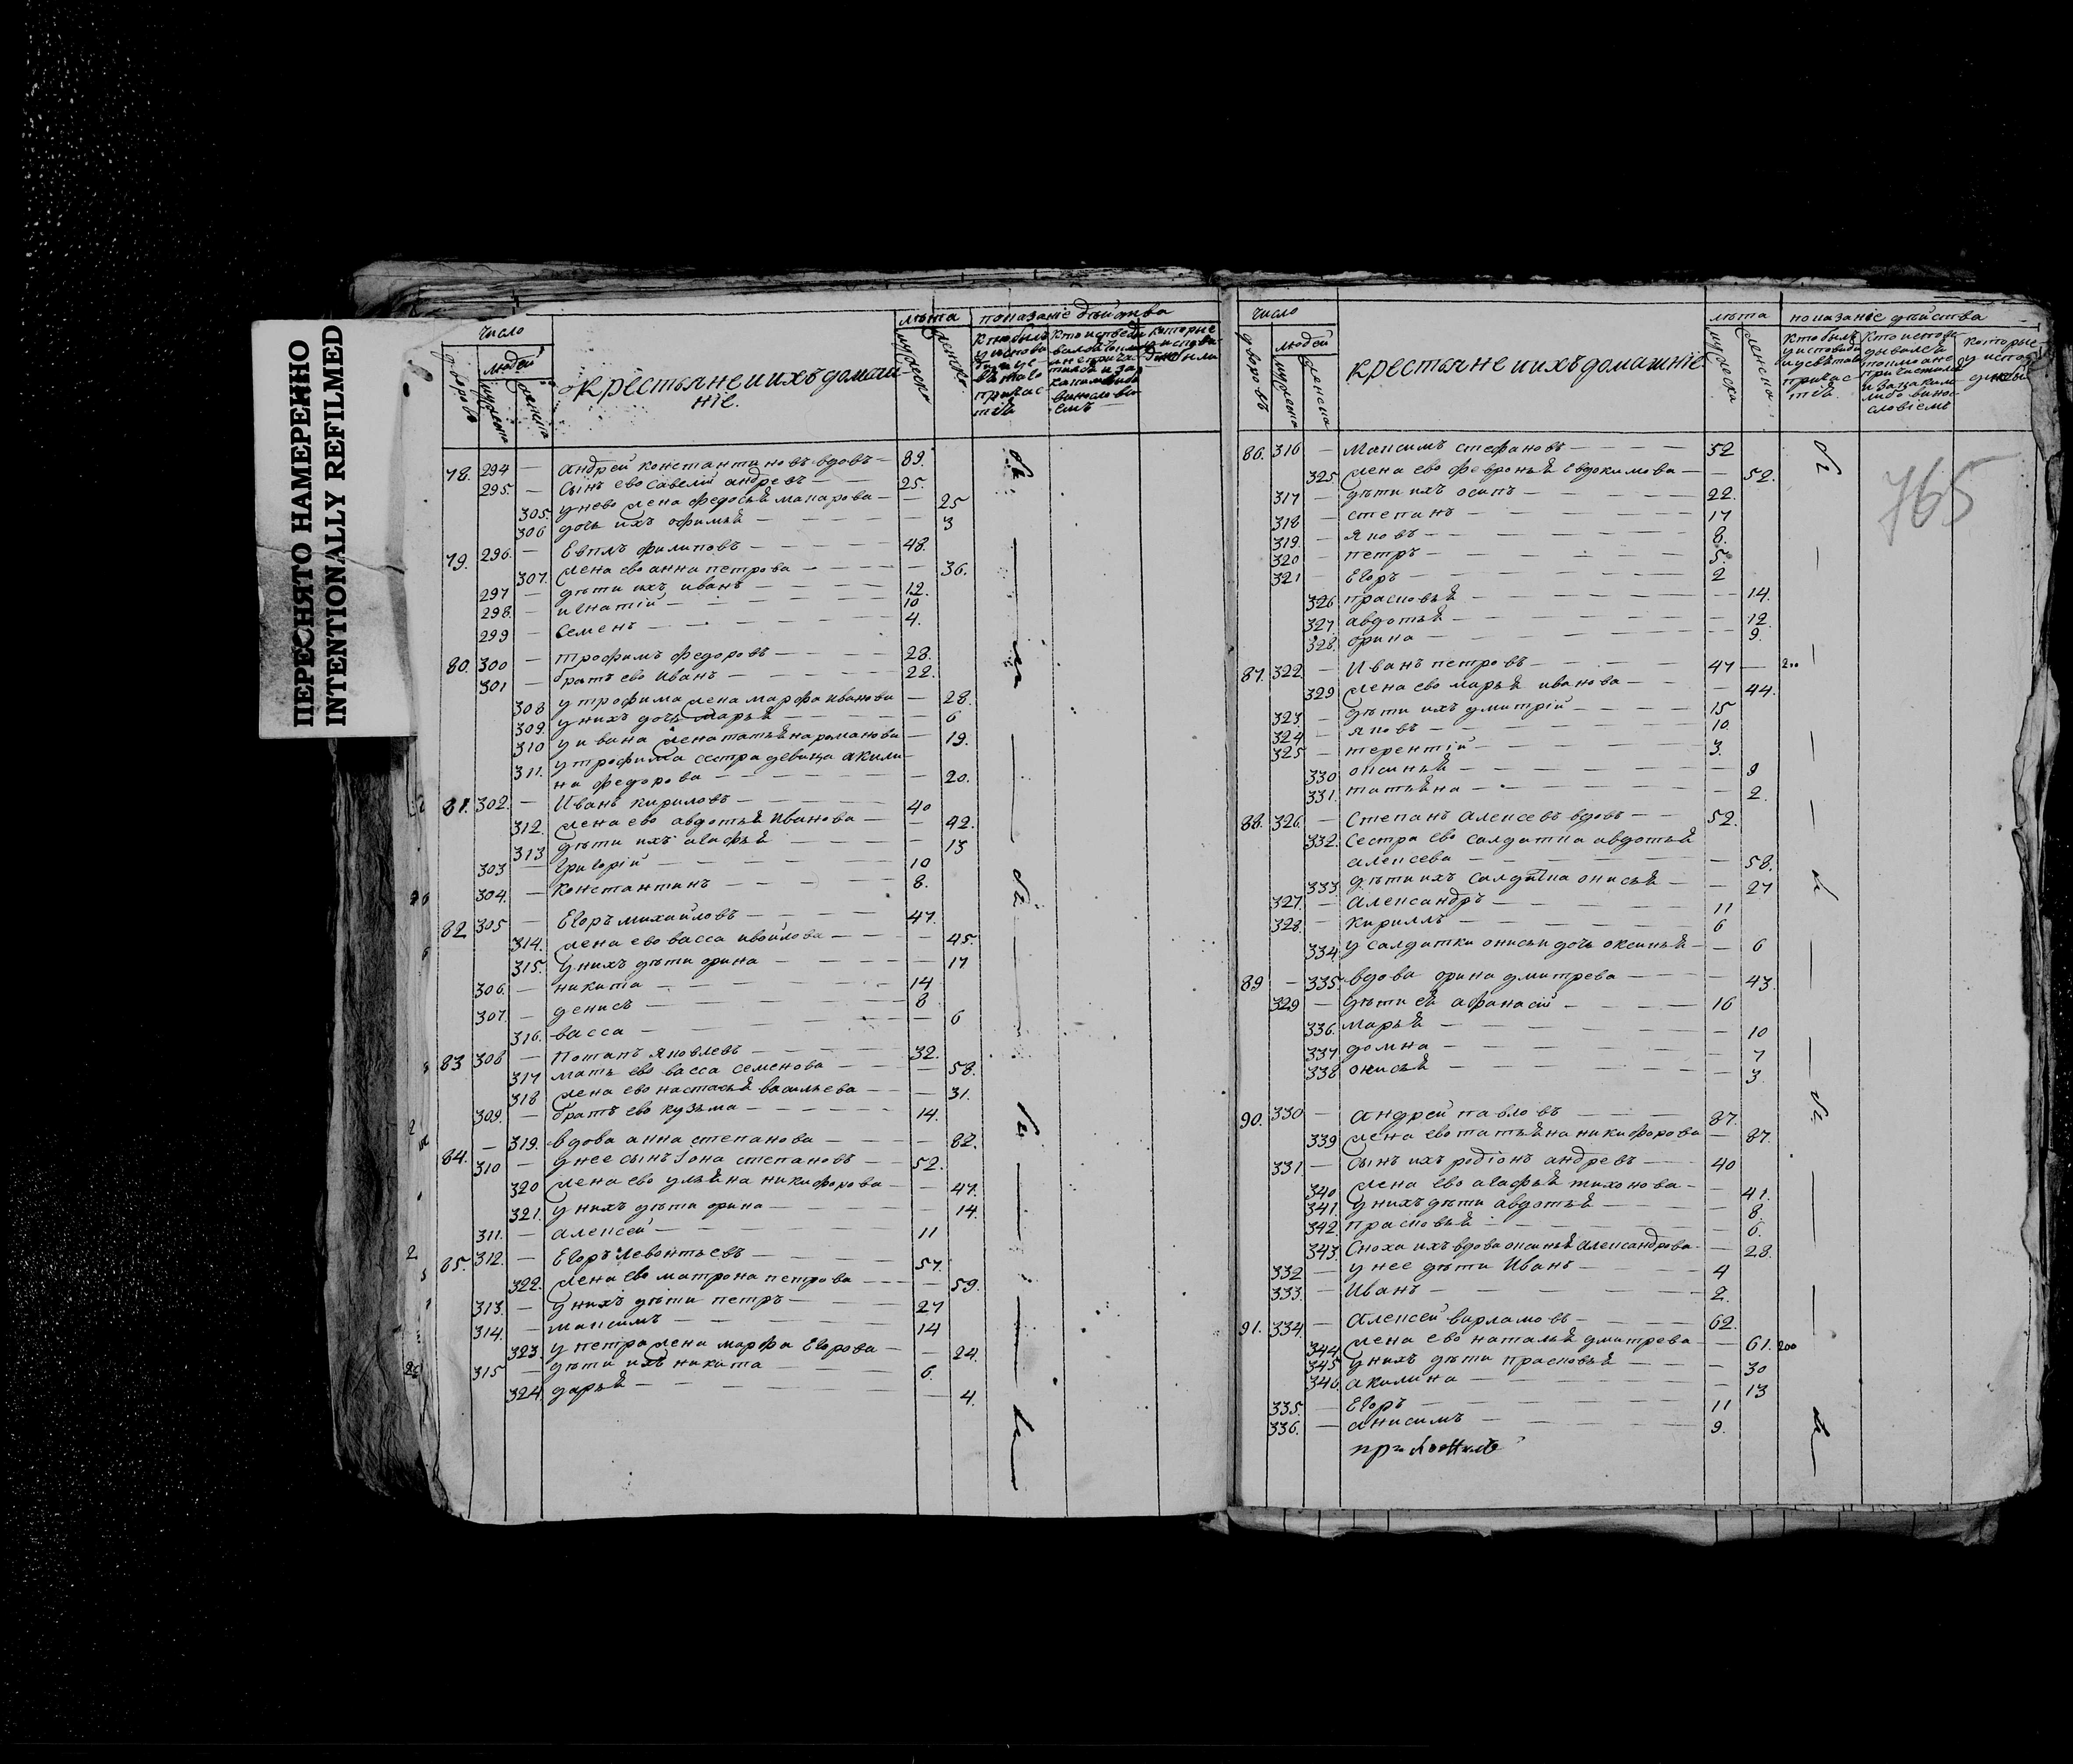 ПЕРЕСНЯТО НАМЕРЕННО
INTENTIONALLY REFILMED
число
дворовъ
людей
мужеска
женска
крестьяне и ихъ домаш
ніе.
лѣта
мужеска
женска
показаніе дѣйства
78. 294 — андрей константиновъ вдовъ — 89.
295. — Сынъ ево савелий андревъ — 25.
305. у нево жена федосья макарова — 25
306 дочь ихъ офимья — 3
79. 296. — Евплъ филиповъ — 48.
307. жена ево анна петрова — 36.
297 — дѣти ихъ иванъ — 12.
298. — игнатій — 10
299 — Семенъ — 4.
80. 300 — трофимъ федоровъ — 28.
301 — братъ ево Иванъ — 22.
308 у трофима жена марфа иванова — 28.
309. у нихъ дочь марья — 6
310 у ивана жена татьяна романова — 19.
311. у трофима сестра девица акили
на федорова — 20.
81. 302. — Иванъ кириловъ — 40
312. жена ево авдотья Иванова — 42.
313 дѣти ихъ агафья — 13
303 — григорій — 10
304. — константинъ — 8.
82 305 — Егоръ михайловъ — 47.
314. жена ево васса ивойлова — 45.
315. у нихъ дѣти орина — 17
306. — никита — 14
307. — денисъ — 8
316. васса — 6
83 308 — Потапъ яковлевъ — 32.
317 мать ево васса семенова — 58.
318 жена ево настасья васильева — 31.
309. — братъ ево кузьма — 14.
84. — 319. вдова анна степанова — 82.
310 — у нее сынъ Iона степановъ — 52.
320 жена ево ульяна никифорова — 47.
321. у нихъ дѣти орина — 14.
311. — алексей — 11
85. 312. — Егоръ левонтьевъ — 57.
322. жена ево матрона петрова — 59.
313. — у нихъ дѣти петръ — 27
314. — максимъ — 14
323. у петра жена марфа Егорова — 24.
315 — дѣти ихъ никита — 6.
324. дарья — 4.
число
дворовъ
людей
мужеска
женска
крестьяне и ихъ домашніе.
лѣта
мужеска
женска
показаніе дѣйства
765
86. 316 — Максимъ стефановъ — 52
325. жена ево февронья евдокимова — 52.
317 — дѣти ихъ осипъ — 22.
318 — степанъ — 17
319. — яковъ — 8.
320 — петръ — 5.
321 — Егоръ — 2
326 прасковья — 14.
327. авдотья — 12.
328. орина — 9.
87. 322. — Иванъ петровъ — 47
329 жена ево марья иванова — 44.
323. — дѣти ихъ дмитрій — 15
324 — яковъ — 10.
325 — терентій — 3.
330 оксинья — 9
331. татьяна — 2.
88. 326. — Степанъ алексевъ вдовъ — 52.
332. Сестра ево салдатка авдотья
алексева — 58.
333 дѣти ихъ салдатка онисья — 27
327. — александръ — 11
328. — кириллъ — 6
334. у салдатки онисьи дочь оксинья — 6
89 — 335. вдова орина дмитрева — 43.
329 — дѣти ея афанасій — 16
336. марья — 10
337 домна — 7
338 онисья — 3.
90. 330 — андрей павловъ — 87.
339 жена ево татьяна никифорова — 87.
331 — сынъ ихъ родіонъ андревъ — 40
340. жена ево агафья тихонова — 41.
341. у нихъ дѣти авдотья — 8.
342. прасковья — 6.
343. Сноха ихъ вдова оксинья александрова — 28.
332 — у нее дѣти Иванъ — 4
333. — Иванъ — 2.
91. 334. — алексей варламовъ — 62.
344. жена ево наталья дмитрева — 61.
345 у нихъ дѣти прасковья — 30
346. акилина — 13
335. — Егоръ — 11
336. — анисимъ — 9.